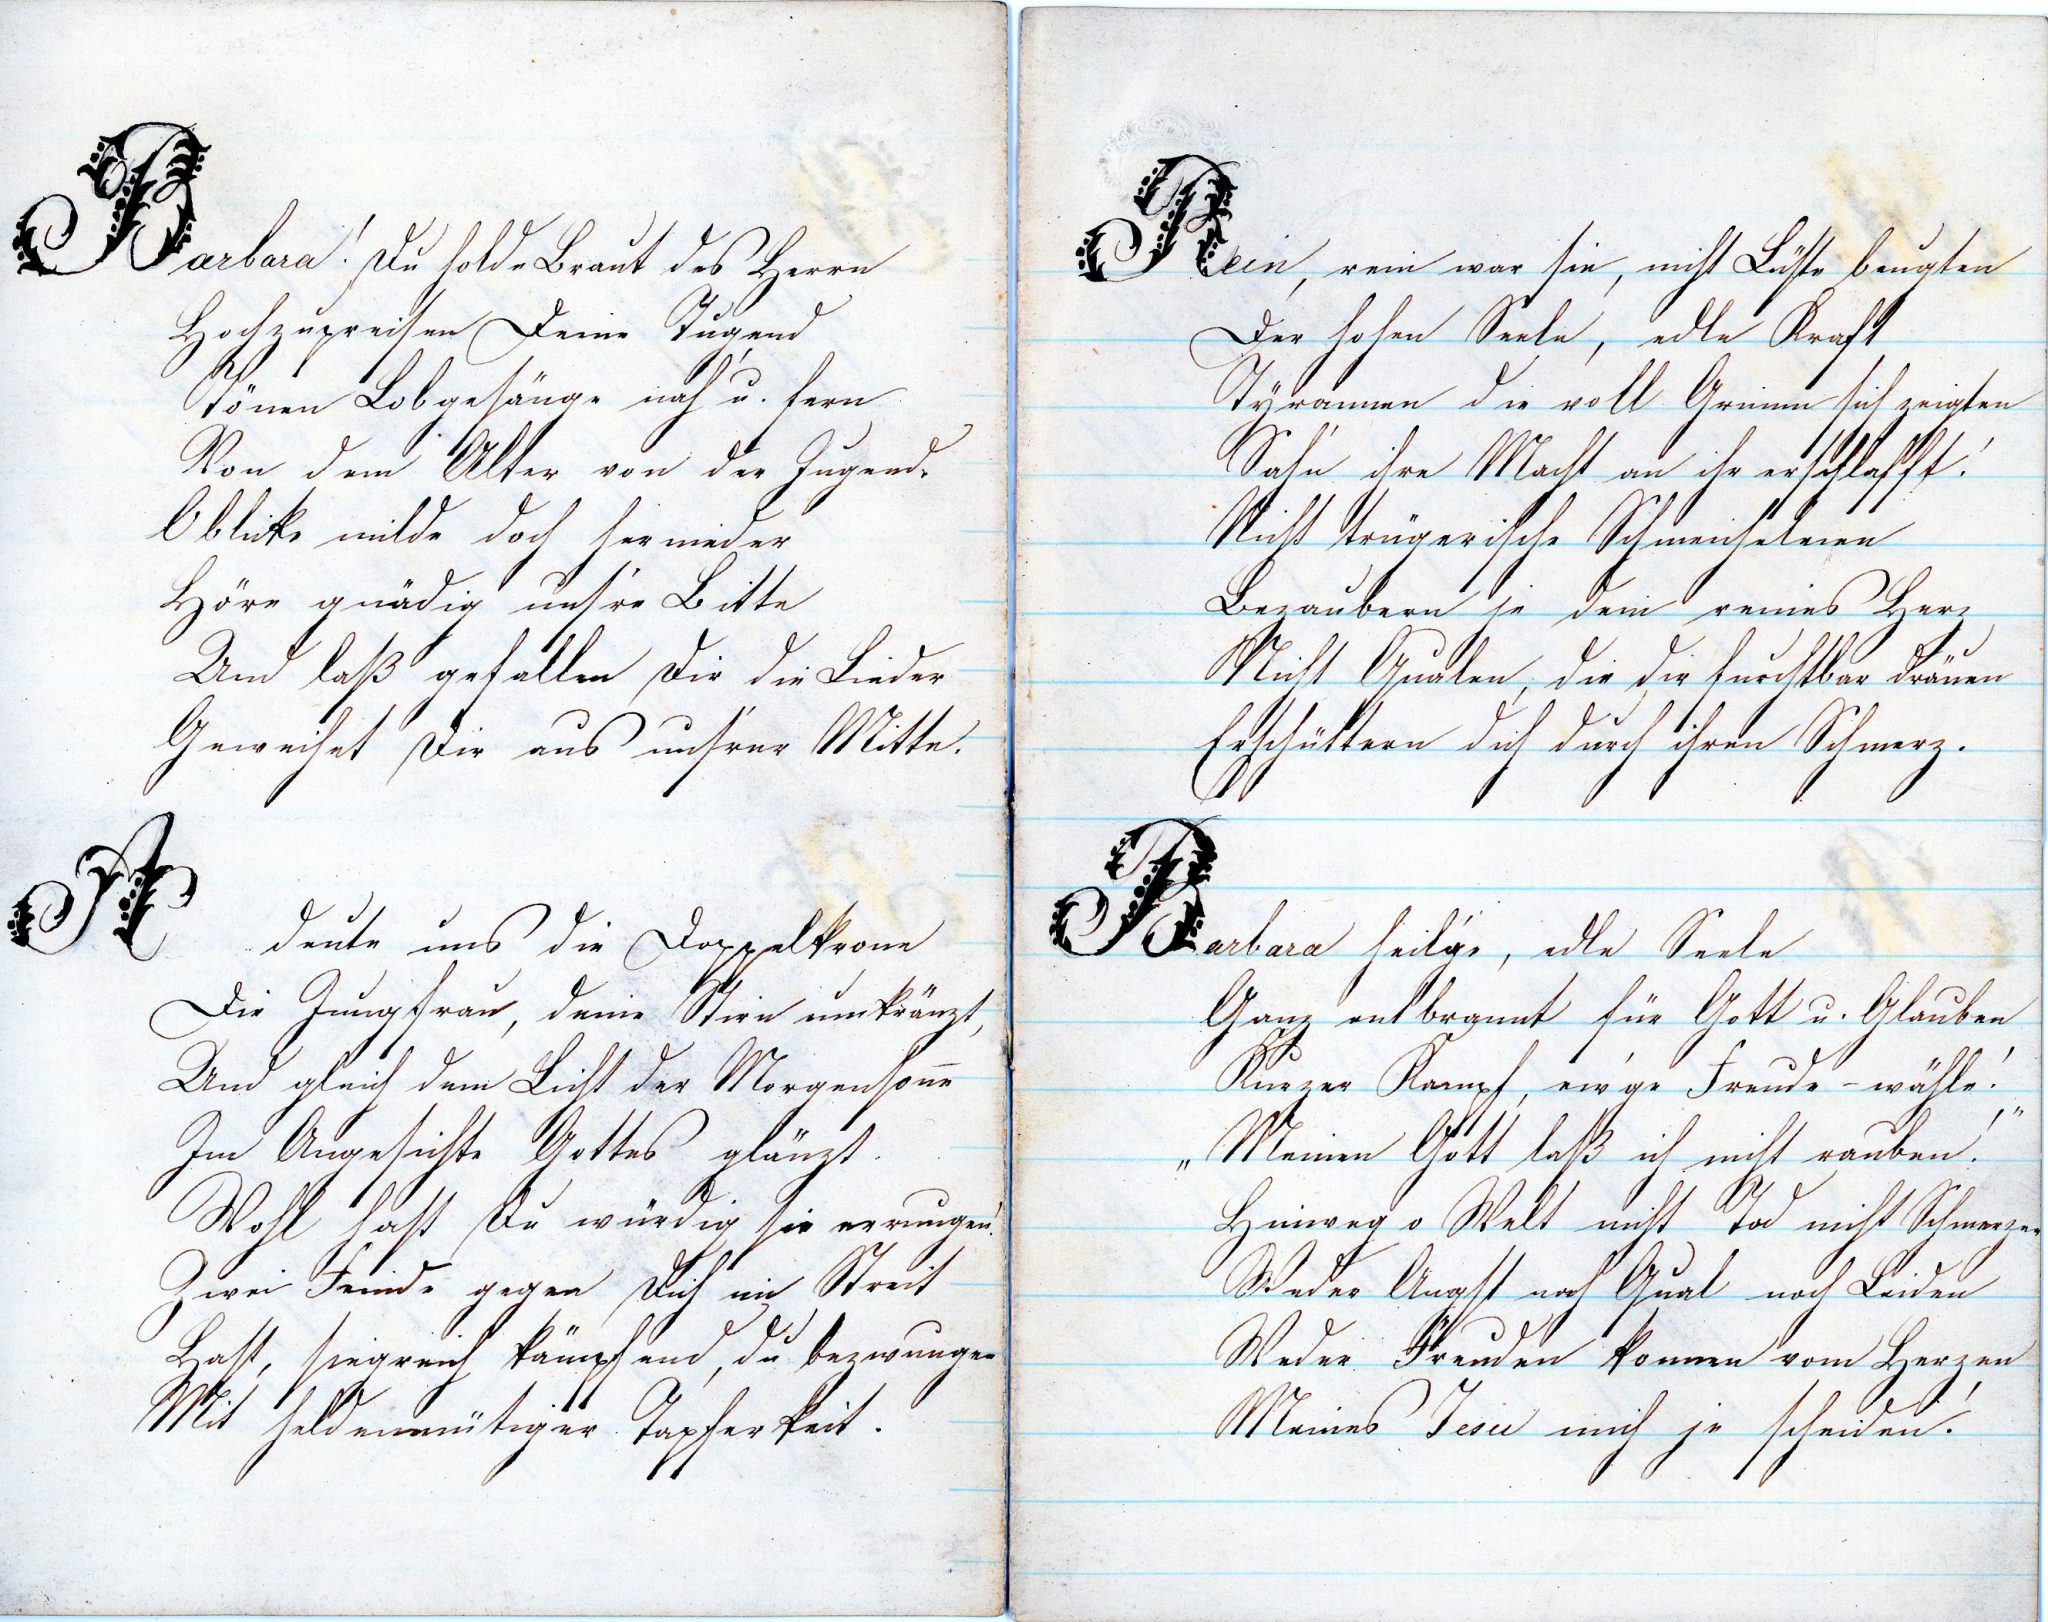 Barbara! Du holde Braut des Herrn
Hochzupreisen Deine Tugend
Tönen Lobgesänge nah u. fern
Von dem Alter von der Jugend.
O blicke milde doch hernieder
Höre gnädig uns're Bitte
Und laß gefallen Dir die Lieder
Geweihet Dir aus uns'rer Mitte.
A deute uns die Doppelkrone
Die Jungfrau, deine Stirn umkränzt,
Und gleich dem Licht der Morgensonne
Im Angesichte Gottes glänzt.
Wohl hast Du würdig sie errungen!
Zwei Feinde gegen Dich im Streit
Hast, siegreich kämpfend, du bezwungen
Mit heldenmütiger Tapferkeit.
Rein, rein war sie, nicht Lüste beugten
Der hohen Seele, edle Kraft
Tyrannen die voll Grimm sich zeigten
Sah'n ihre Macht an ihr erschlafft!
Nicht trügerische Schmeicheleien
Bezaubern je dein reines Herz
Nicht Qualen, die dir furchtbar dräuen
Erschüttern dich durch ihren Schmerz.
Barbara heil'ge, edle Seele
Ganz entbrannt für Gott u. Glauben
Kurzer Kampf, ew'ge Freude – wähle!
„Meinen Gott laß ich nicht rauben!"
Hinweg o Welt nicht Tod nicht Schmerzen
Weder Angst noch Qual noch Leiden
Weder Freuden konnen vom Herzen
Meines Jesu mich je scheiden!